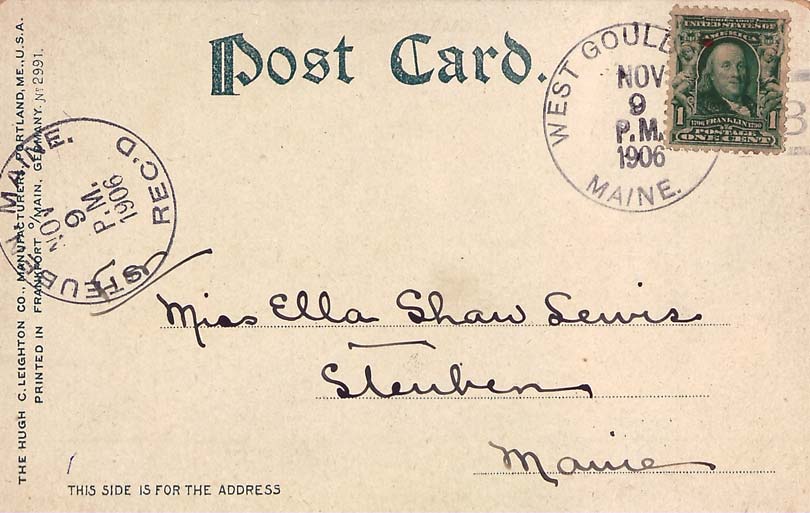 Post Card.
WEST GOULD
NOV
9
P.M.
1906
MAINE.
SERIES 1902
UNITED STATES OF
AMERICA
1 1
FRANKLIN
POSTAGE
ONE CENT
STEUBEN MAINE.
NOV
9
P.M.
1906
REC'D
THE HUGH C. LEIGHTON CO., MANUFACTURERS, PORTLAND, ME., U.S.A.
PRINTED IN FRANKFORT o/MAIN, GERMANY. No 2991.
Miss Ella Shaw Lewis
Steuben
Maine
THIS SIDE IS FOR THE ADDRESS